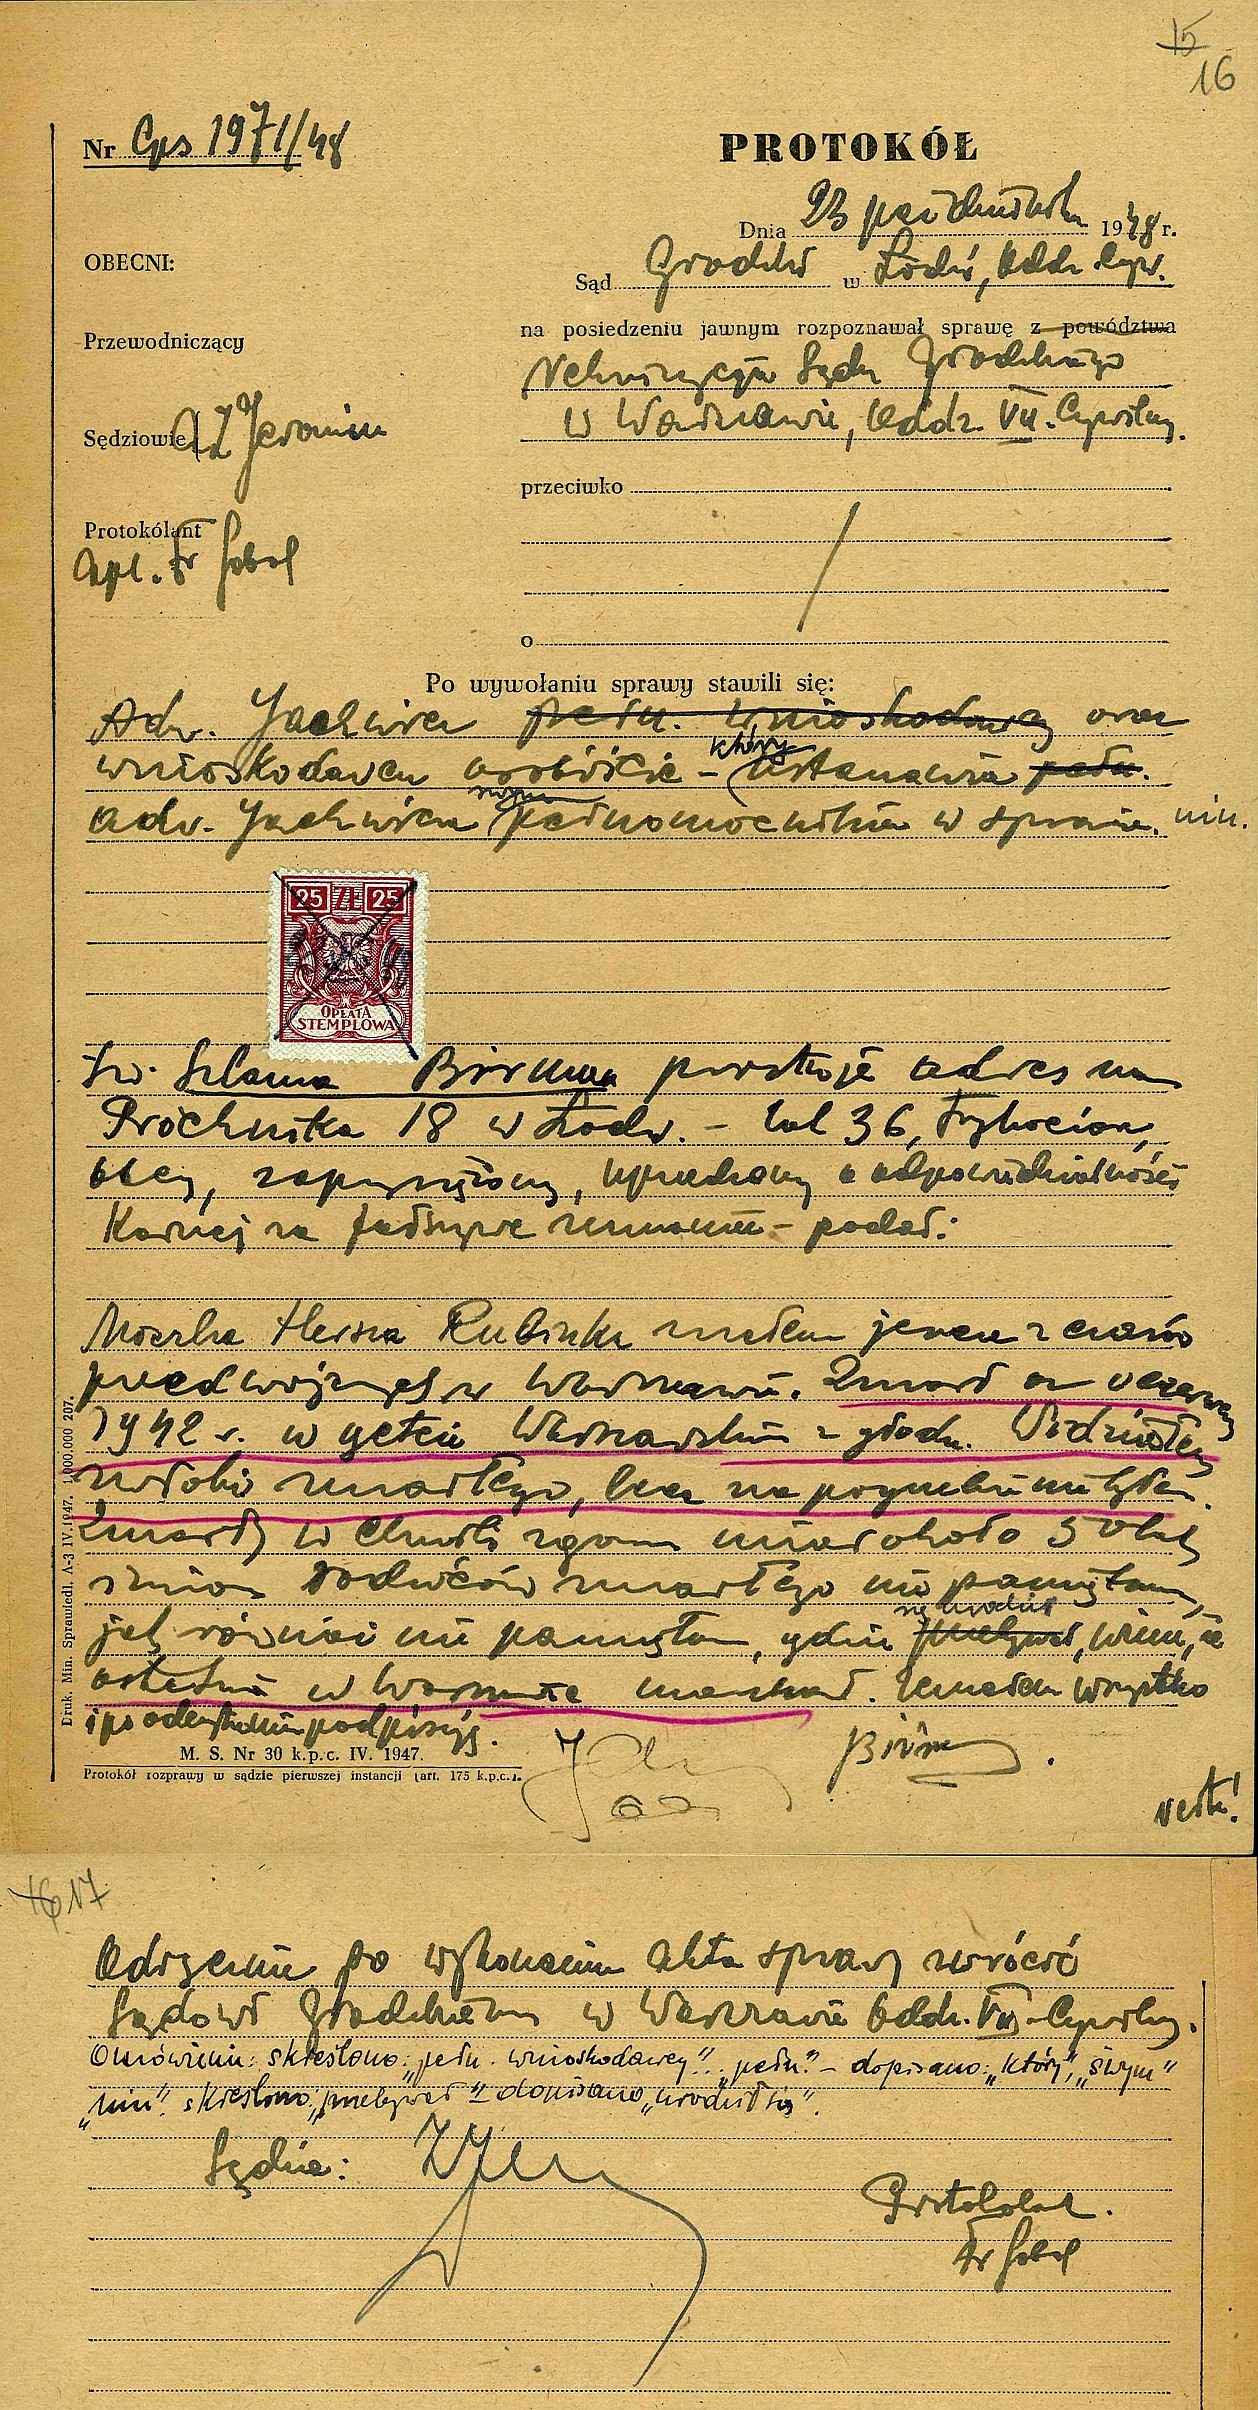 15
16
Nr Cps 1971/48
PROTOKÓŁ
Dnia 23 października 1948 r.
OBECNI:
Sąd Grodzki w Łodzi, Oddz. Cyw.
na posiedzeniu jawnym rozpoznawał sprawę z powództwa
Przewodniczący
Rekwizycja Sądu Grodzkiego
w Warszawie, Oddz. VII. Cywilny.
Sędziowie
przeciwko
Protokólant
apl. Fr Sobol
o
Po wywołaniu sprawy stawili się:
Adw. Jachwicz pełn. wnioskodawcy oraz
wnioskodawca osobiście – który ustanawia pełn.
adw. Jachwicza swym pełnomocnikiem w sprawie nin.
25 ZŁ 25
OPŁATA
STEMPLOWA
Św. Szlama Birman prostuje adres na
Próchnika 18 w Łodzi. – lat 36,
obcy, zaprzysiężony, uprzedzony o odpowiedzialności
karnej za fałszywe zeznanie – podał:
Moszka Hersza Rubinka znałem jeszcze z czasów
przedwojennych w Warszawie. Zmarł on w czerwcu
1942 r. w getcie Warszawskim z głodu. Widziałem
zwłoki zmarłego, lecz na pogrzebie nie byłem.
Zmarły w chwili zgonu miał około 50 lat
imion rodziców zmarłego nie pamiętam,
jak również nie pamiętam, gdzie przebywał się urodził, wiem, że
ostatnio w Warszawie mieszkał. Zeznałem wszystko
i po odczytaniu podpisuję.
M. S. Nr 30 k.p.c. IV. 1947.
Protokół rozprawy w sądzie pierwszej instancji (art. 175 k.p.c.).
Druk. Min. Sprawiedl. A-3 IV.1947. 1.000.000 207.
verte!
16 17
Odręcznie po wykonaniu akta sprawy zwrócić
Sądowi Grodzkiemu w Warszawie Oddz. VII Cywilny.
Omówienie: skreślono: „pełn. wnioskodawcy”, „pełn.” – dopisano: „który”, „swym”
„nin”. skreślono: „przebywał” – dopisano „urodził się”.
Sędzia:
Protokolant.
Fr Sobol